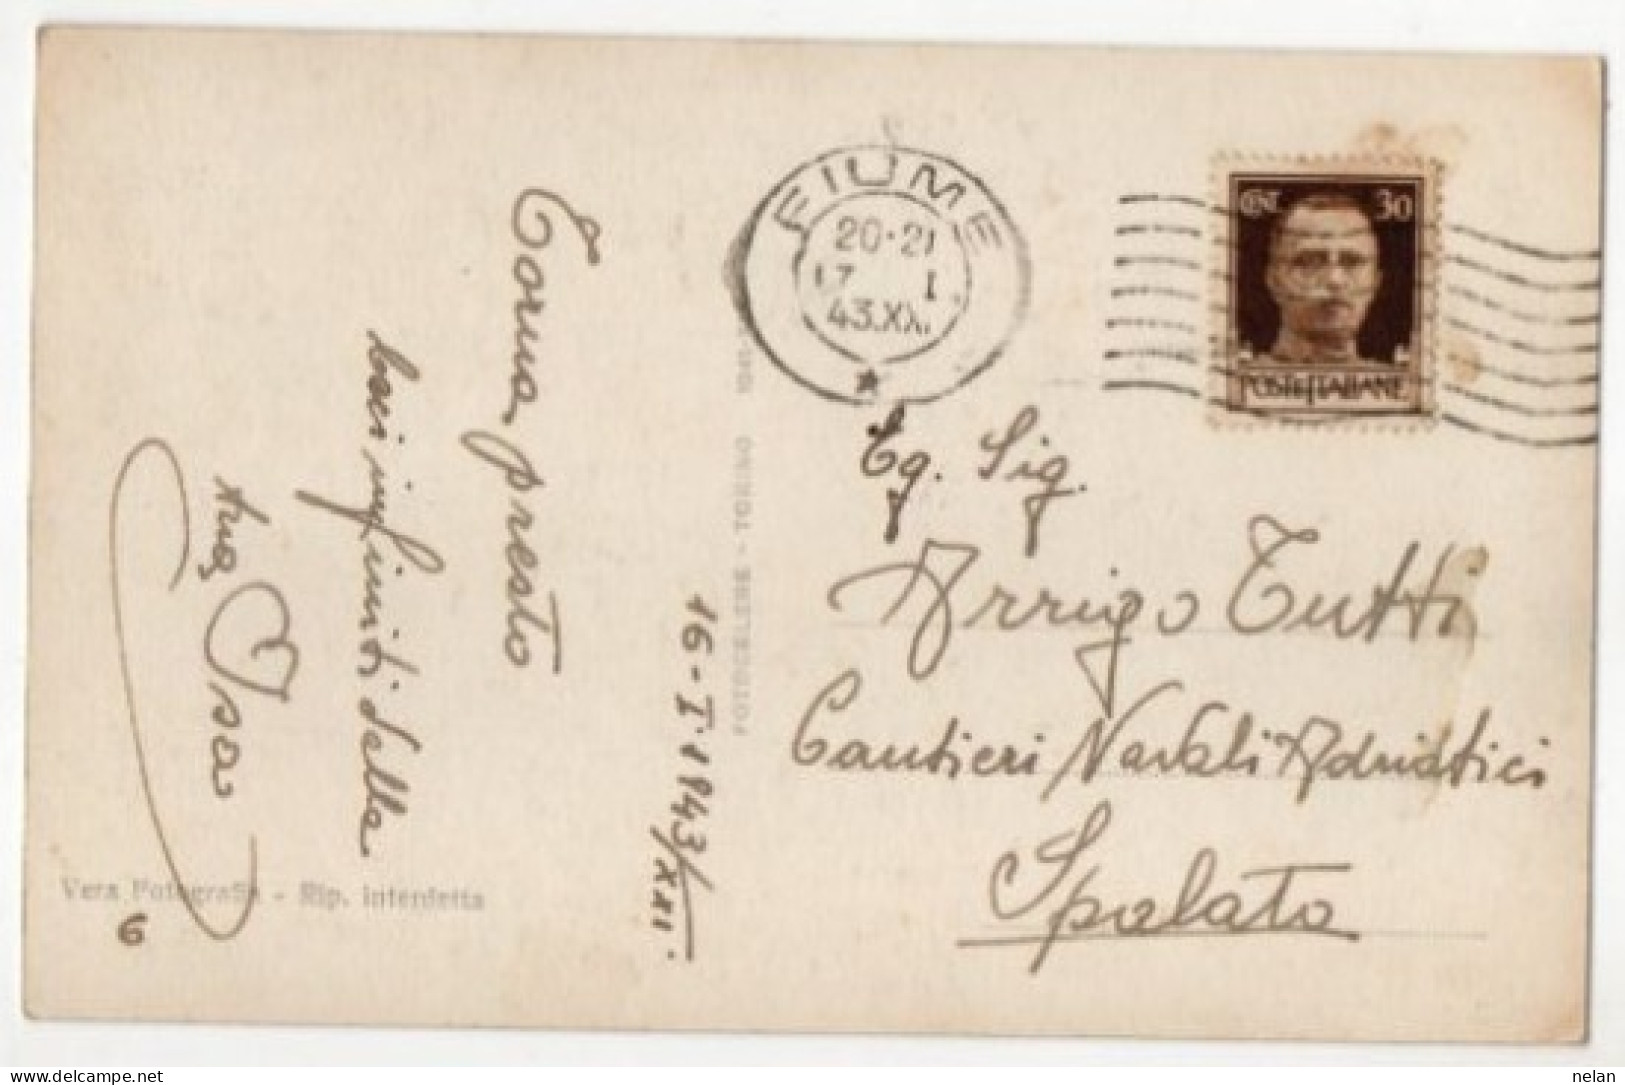 FIUME
20·21
17 I
43.XXI
CENT 30
POSTE ITALIANE
Torna presto
baci infiniti dalla
tua
Isa
16-I-1943/XXI.
FOTOCELERE - TORINO
Eg. Sig.
Arrigo Tutti
Cantieri Navali Adriatici
Spalato
Vera Fotografia - Rip. interdetta
6
nelan